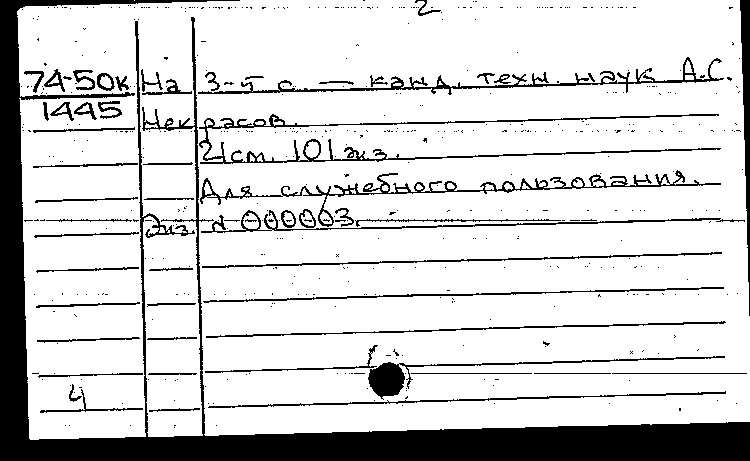 2
74-50к На 3-5 с. — канд. техн. наук А.С.
1445 Некрасов.
21см. 101 экз.
Для служебного пользования.
Экз. № 000003.
4